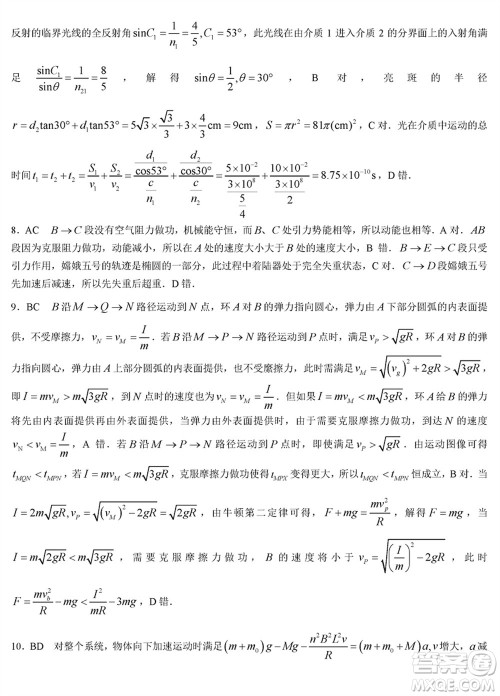 反射的临界光线的全反射角 sinC₁ = 1/n₁ = 4/5, C₁ = 53°，此光线在由介质 1 进入介质 2 的分界面上的入射角满
足 sinC₁/sinθ = 1/n₂₁ = 8/5 ，解得 sinθ = 1/2, θ = 30° ，B 对．亮斑的半径
r = d₂tan30° + d₁tan53° = 5√3 × √3/3 + 3 × 4/3 cm = 9cm ，S = πr² = 81π(cm)²，C 对．光在介质中运动的总
时间 t₁ = t₁ + t₂ = S₁/v₁ + S₂/v₂ =
8．AC B → C 段没有空气阻力做功，机械能守恒，而 B、C 引力势能相等，所以动能也相等．A 对．AB
段因为克服阻力做功，动能减小，所以在 A 处的速度大小大于 B 处的速度大小，B 错．B → E → C 段只受
引力作用，嫦娥五号的轨迹是椭圆的一部分，此过程中着陆器处于完全失重状态．C → D 段，嫦娥五号
先加速后减速，所以先失重后超重，D 错．
9．BC B 沿 M → Q → N 路径运动到 N 点，环 A 对 B 的弹力指向圆心，弹力由 A 上部分圆弧的内表面提
供，不受摩擦力，v_N = v_M = I/m．若 B 沿 M → P → N 路径运动到 N 点，当运动到 P 点时，满足 v_P > √gR，
环 A 对 B 的弹力指向圆心，弹力由 A 上部分圆弧的内表面提供，也不受摩擦力，此时需满足 > √3gR，
即 I = mv_M > m√3gR，到 N 点时的速度也为 v_N = v_M = I/m．但如果 I = mv_M < m√3gR，环 A 给 B 的弹力
将先由内表面提供再由外表面提供，当弹力由外表面提供时，由于需要克服摩擦力做功，到达 N 的速度
v_N < v_M = I/m，A 错．若 B 沿 M → P → N 路径运动到 N 点，会先减速后加速，所以由运动图像可得
t_MQN < t_MPN；若 I = mv_M < m√3gR，克服摩擦力做功会使得 变得更大，所以 t_MQN < t_MPN 恒成立，B 对．当
I = 2m√gR, v_P = √((I/m)² − 2gR) = √2gR，由牛顿第二定律可得，F + mg = mv_p²/R，解得 F = mg，C 对．当
I = m√2gR < m√3gR，需要克服摩擦力做功，B 的速度将小于 v_P = √((I/m)² − 2gR)，此时
F = mv_b²/R − mg < I²/mR − 3mg，D 错．
10．BD 对整个系统，物体向下加速运动时满足 (m + m₀)g − Mg − n²B²L²v/R = (M + m + m₀)a, v 增大，a 减
答案圈
MXQE.COM